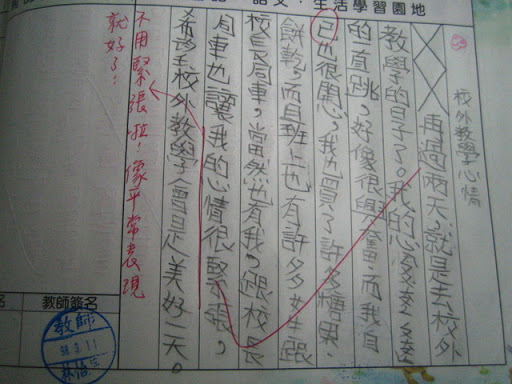 生活學習園地
校外教學心情
再過兩天，就是去校外
教學的日子了。我的心
的一直跳，好像很興奮，而我自
已也很開心，我也買了許多糖果、
餅乾，而且班上也有許多女生跟
校長同車，當然也有我，跟校長
同車也讓我的心情很緊張，
希望校外教學會是美好一天。
不用緊張啦！像平常表現
就好了！
教師簽名
教師
98.3.11